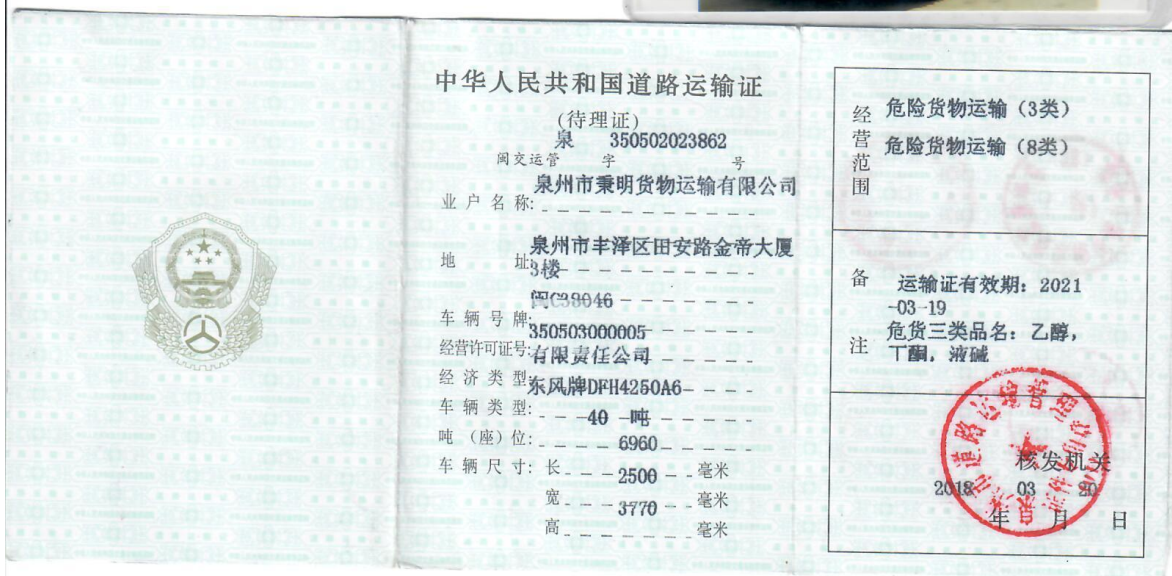 中华人民共和国道路运输证
(待理证)
泉 350502023862
闽交运管 字 号
泉州市秉明货物运输有限公司
业户名称:
泉州市丰泽区田安路金帝大厦
地 址:3楼
闽C38046
车辆号牌:
350503000005
经营许可证号:
有限责任公司
经济类型:
东风牌DFH4250A6
车辆类型:
40 吨
吨（座）位:
6960
车辆尺寸: 长 毫米
2500
宽 毫米
3770
高 毫米
经营范围
危险货物运输（3类）
危险货物运输（8类）
备注
运输证有效期：2021
-03-19
危货三类品名：乙醇，
丁酮，液碱
核发机关
2018 03 20
年 月 日